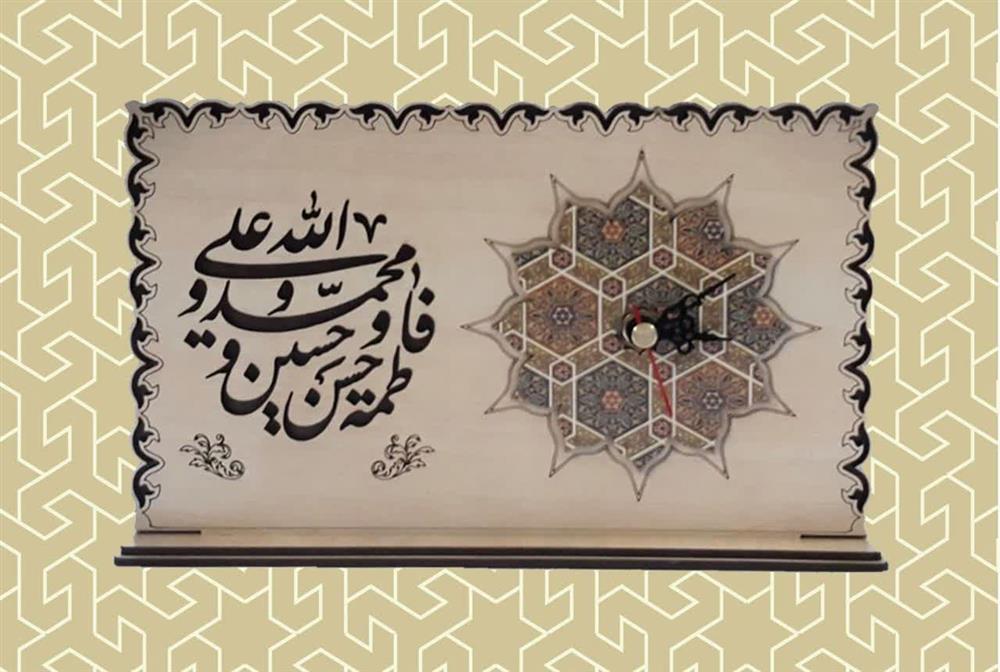 الله
و محمد و علی و
فاطمة حسن و حسین و